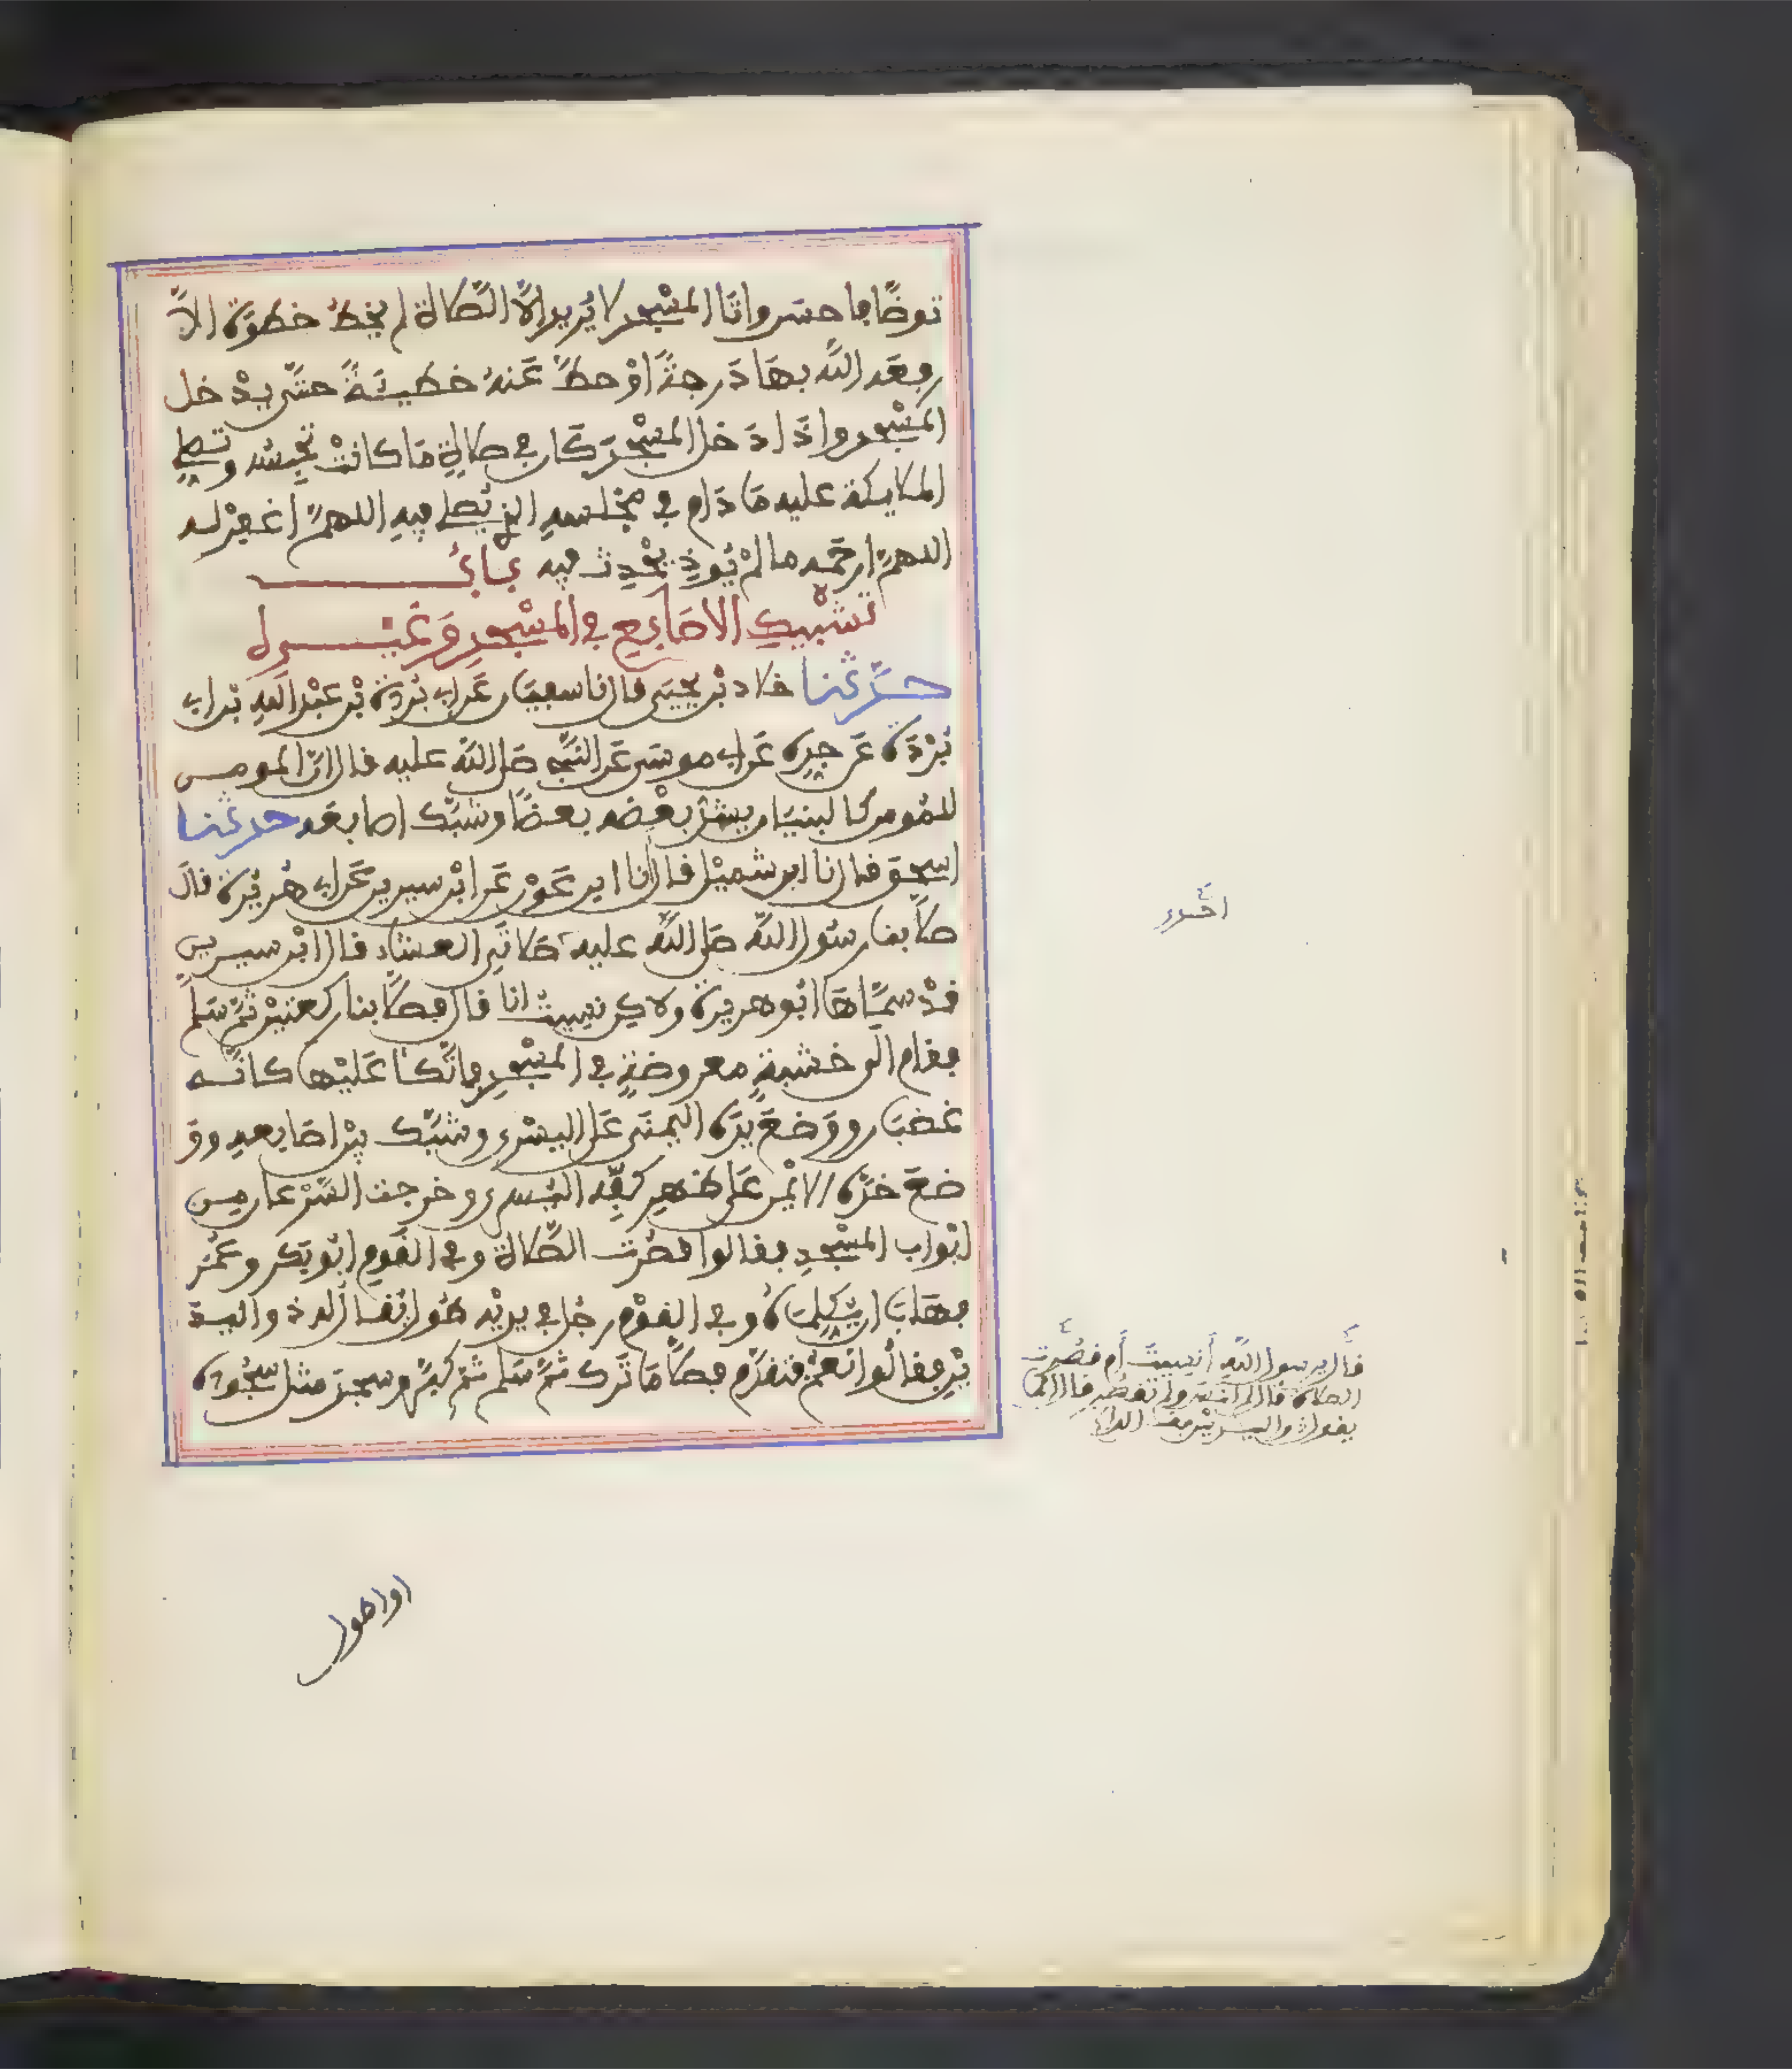 توضّأ فاحسن واتا المسْجد لا يُريد الّا الصّلاة لم يخطُ خطوةً الّا
رفعه اللّه بها دَرجةً اوْ حطّ عَنهُ خطيئةً حتّى يدْخل
المسْجد واذا دَخل المسْجدَ كان في صلاةٍ مَا كانتْ تحْبِسُه وتصلي
الملايكة عليه مَا دَام في مجْلسهِ الذي يُصلي فيهِ اللهمّ اغفرْ له
اللهمّ ارحَمْه ما لمْ يُوذِ يُحْدِث فيه بَابُ
تشْبيكِ الاصَابِعِ في المسْجدِ وَغَيْره
حدّثنا خلاد بْن يحيَى قال نا سفيَان عَن ابي بُرْدة بْن عَبْد اللهِ بْن ابي
بُرْدَة عَن جدِّه عَن ابي موسَى عَن النّبي صَلى اللّه عليه قال انّ المومن
للمُومن كالبنيَان يشدُّ بعْضه بعضًا وشبّك اصابعَه حدثنا
اسحق قال انا ابن شميْل قال انا ابن عَوْن عَن ابْن سيرين عَن ابي هُريْرة قال
صلّا بنا رسُول اللّه صَلى اللّه عليه صَلاتَي العشاء قال ابْن سيرين
قدْ سمّاهَا ابُو هريرة ولاكن نسيتُ انا قال فصلّا بنا ركعتيْن ثمّ سَلم
فقام الى خشبةٍ معروضةٍ في المسْجدِ فاتّكا عَليْها كانّه
غضبَان ووَضعَ يدَه اليُمنَى عَلى اليسْرى وشبّك بيْن اصَابعهِ ووَ
ضعَ خدّه الايْمن عَلى ظهرِ كفِّه اليُسرى وخرجت السّرْعان من
ابْواب المسْجدِ فقالوا قصُرَت الصّلاة وفي القَوم ابُو بَكر وعُمَر
فهَابَا ان يُّكلمَاهُ وفي القوْم رجُل في يديْه طُول يُقَال له ذو اليد
يْنِ فقالُوا نعَمْ فتقدَّم فصلّا مَا تَرك ثمّ سَلم ثمّ كبّر وسجدَ مثل سجُوده
اخبرنا
قال يرسول اللّهِ أنسيتَ أم قصُرت
الصلاة قال لم انسَ ولم تقصُر قال اكما
يقول ذو اليديْن
او اطول